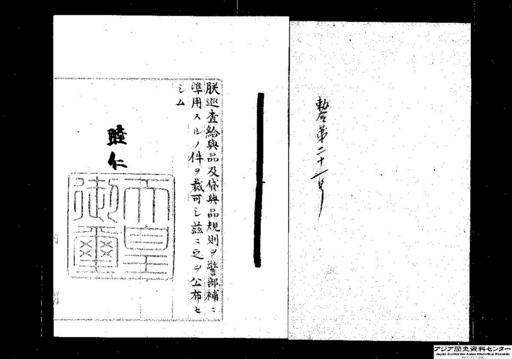 勅令第二十一号
朕巡査給與品及貸與品規則ヲ警部補ニ
準用スルノ件ヲ裁可シ茲ニ之ヲ公布セ
シム
睦仁
天皇
御璽
アジア歴史資料センター
Japan Center for Asian Historical Records